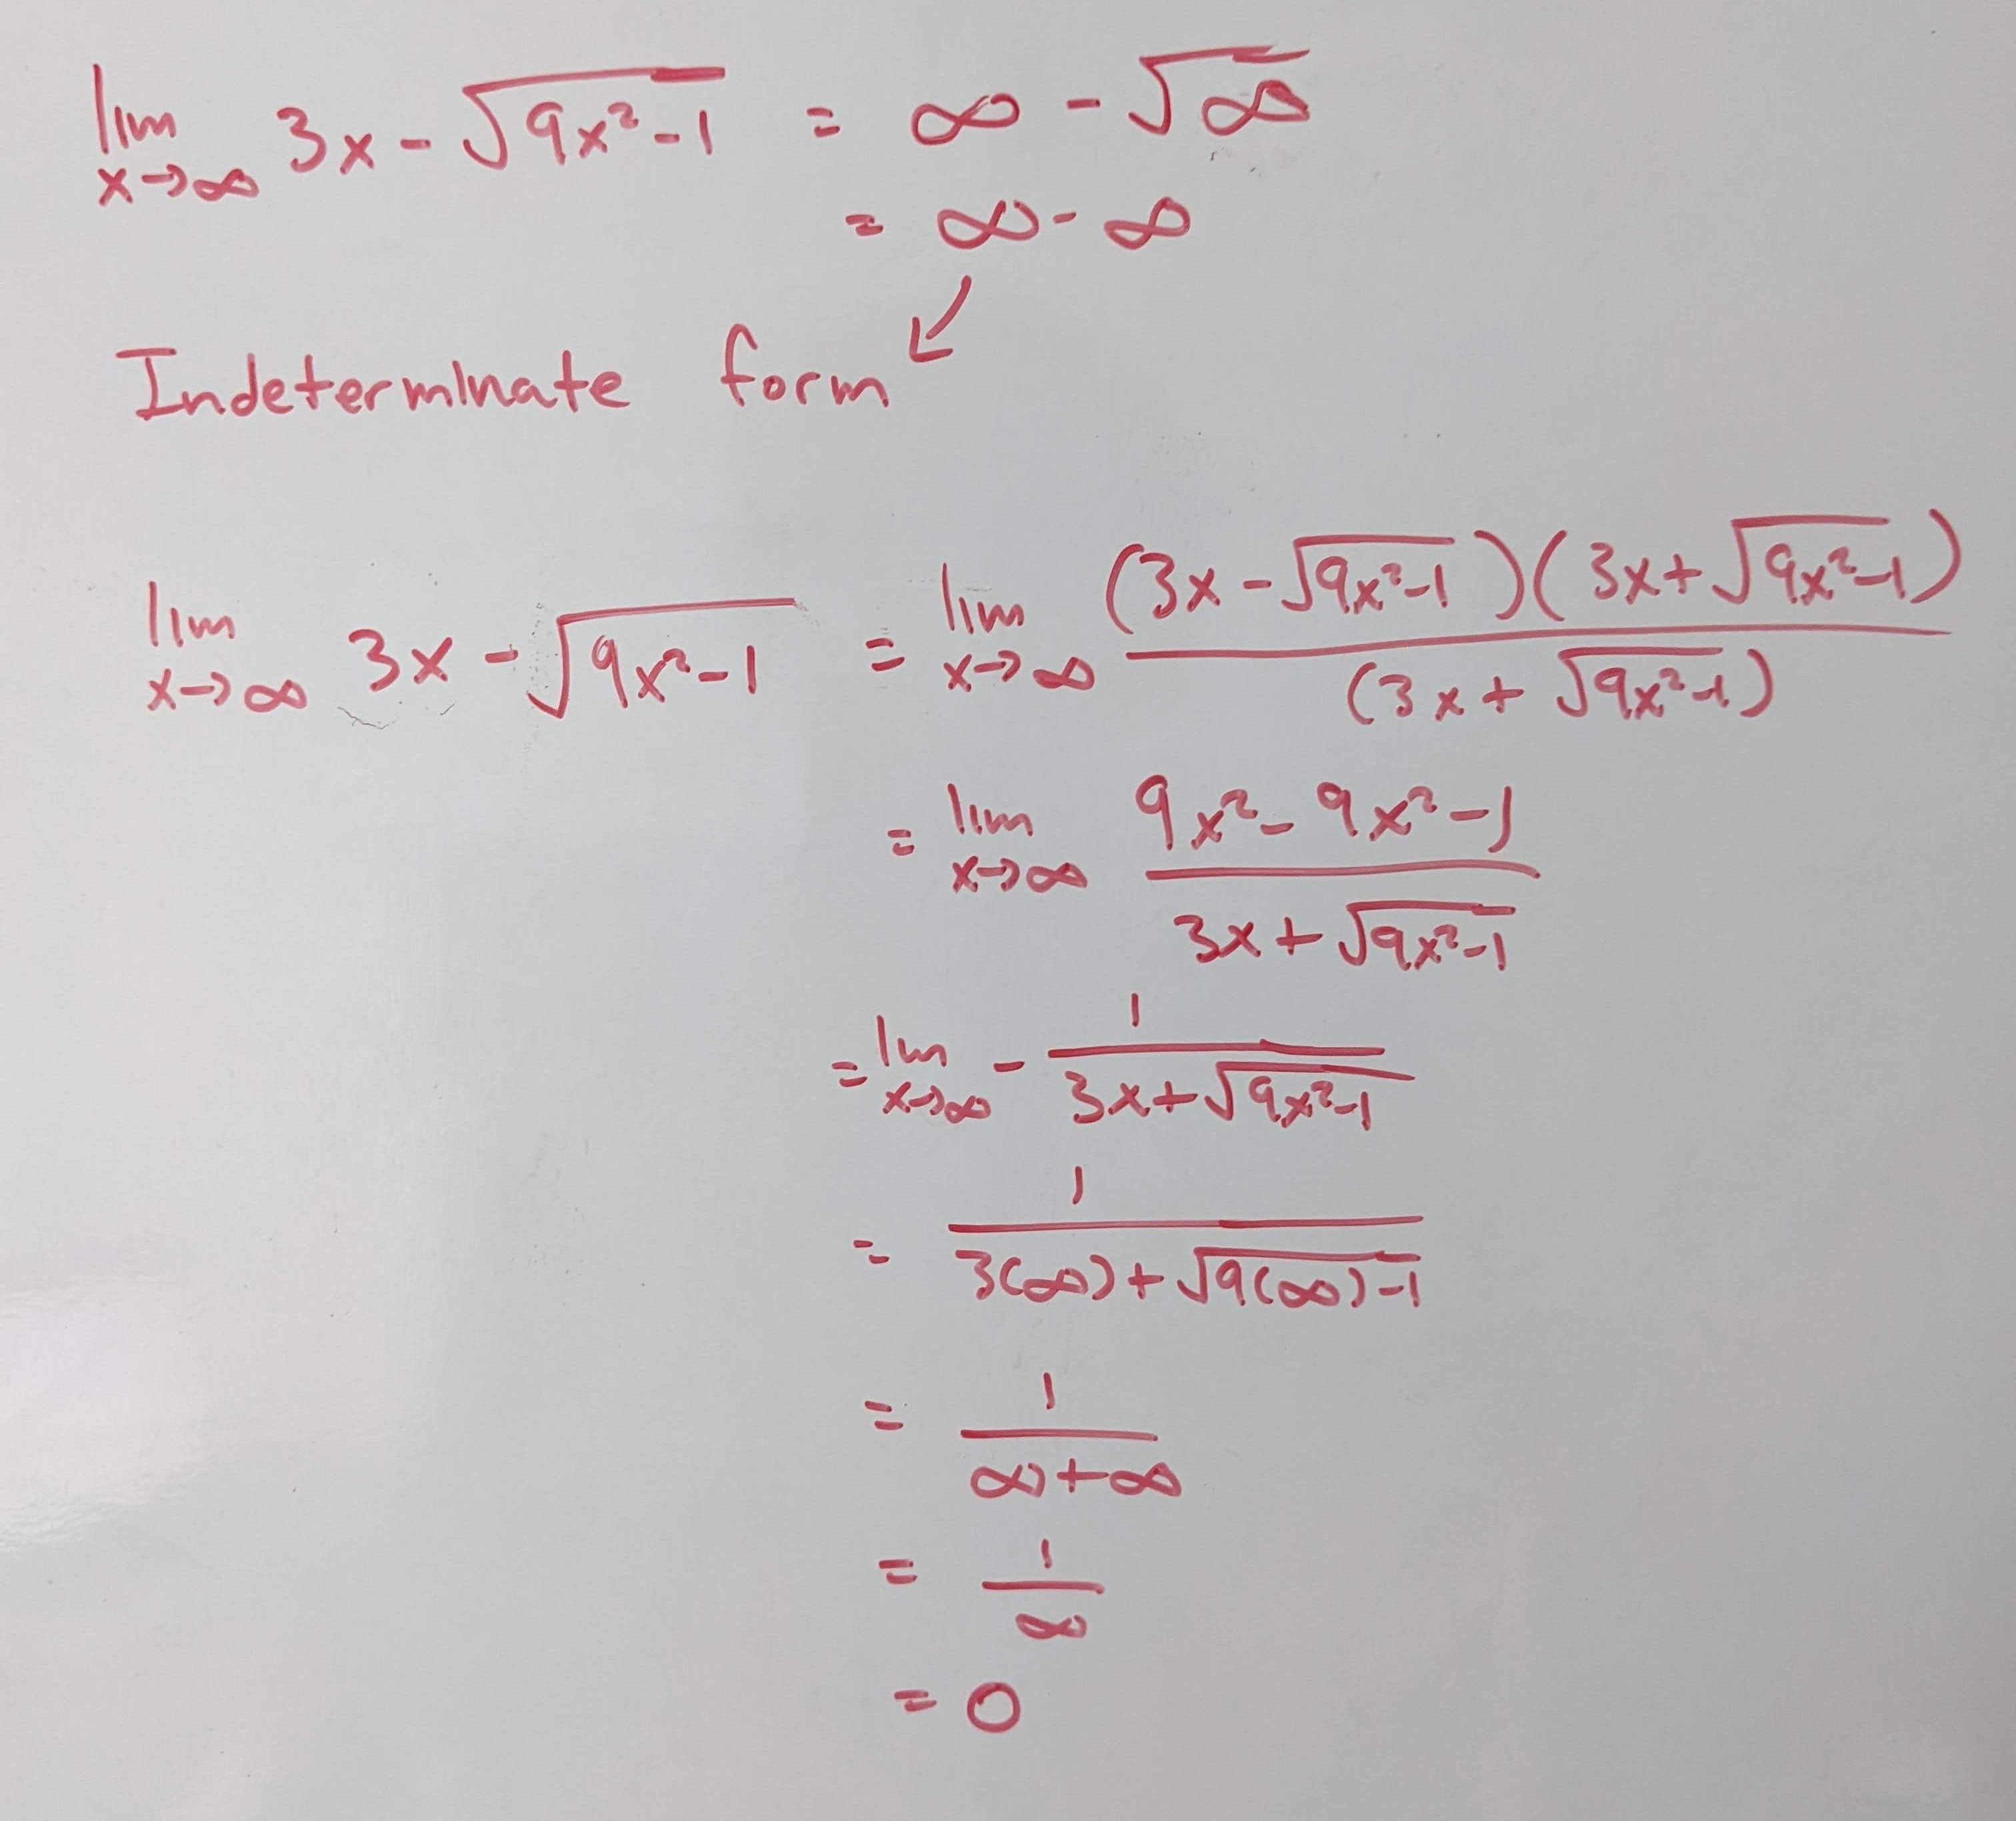 lim x→∞ 3x - √(9x² - 1) = ∞ - √∞
= ∞ - ∞
↙
Indeterminate form
lim x→∞ 3x - √(9x² - 1) = lim x→∞ (3x - √(9x² - 1))(3x + √(9x² - 1)) / (3x + √(9x² - 1))
= lim x→∞ (9x² - 9x² - 1) / (3x + √(9x² - 1))
= lim x→∞ - 1 / (3x + √(9x² - 1))
= 1 / (3(∞) + √(9(∞) - 1))
= 1 / (∞ + ∞)
= 1 / ∞
= 0